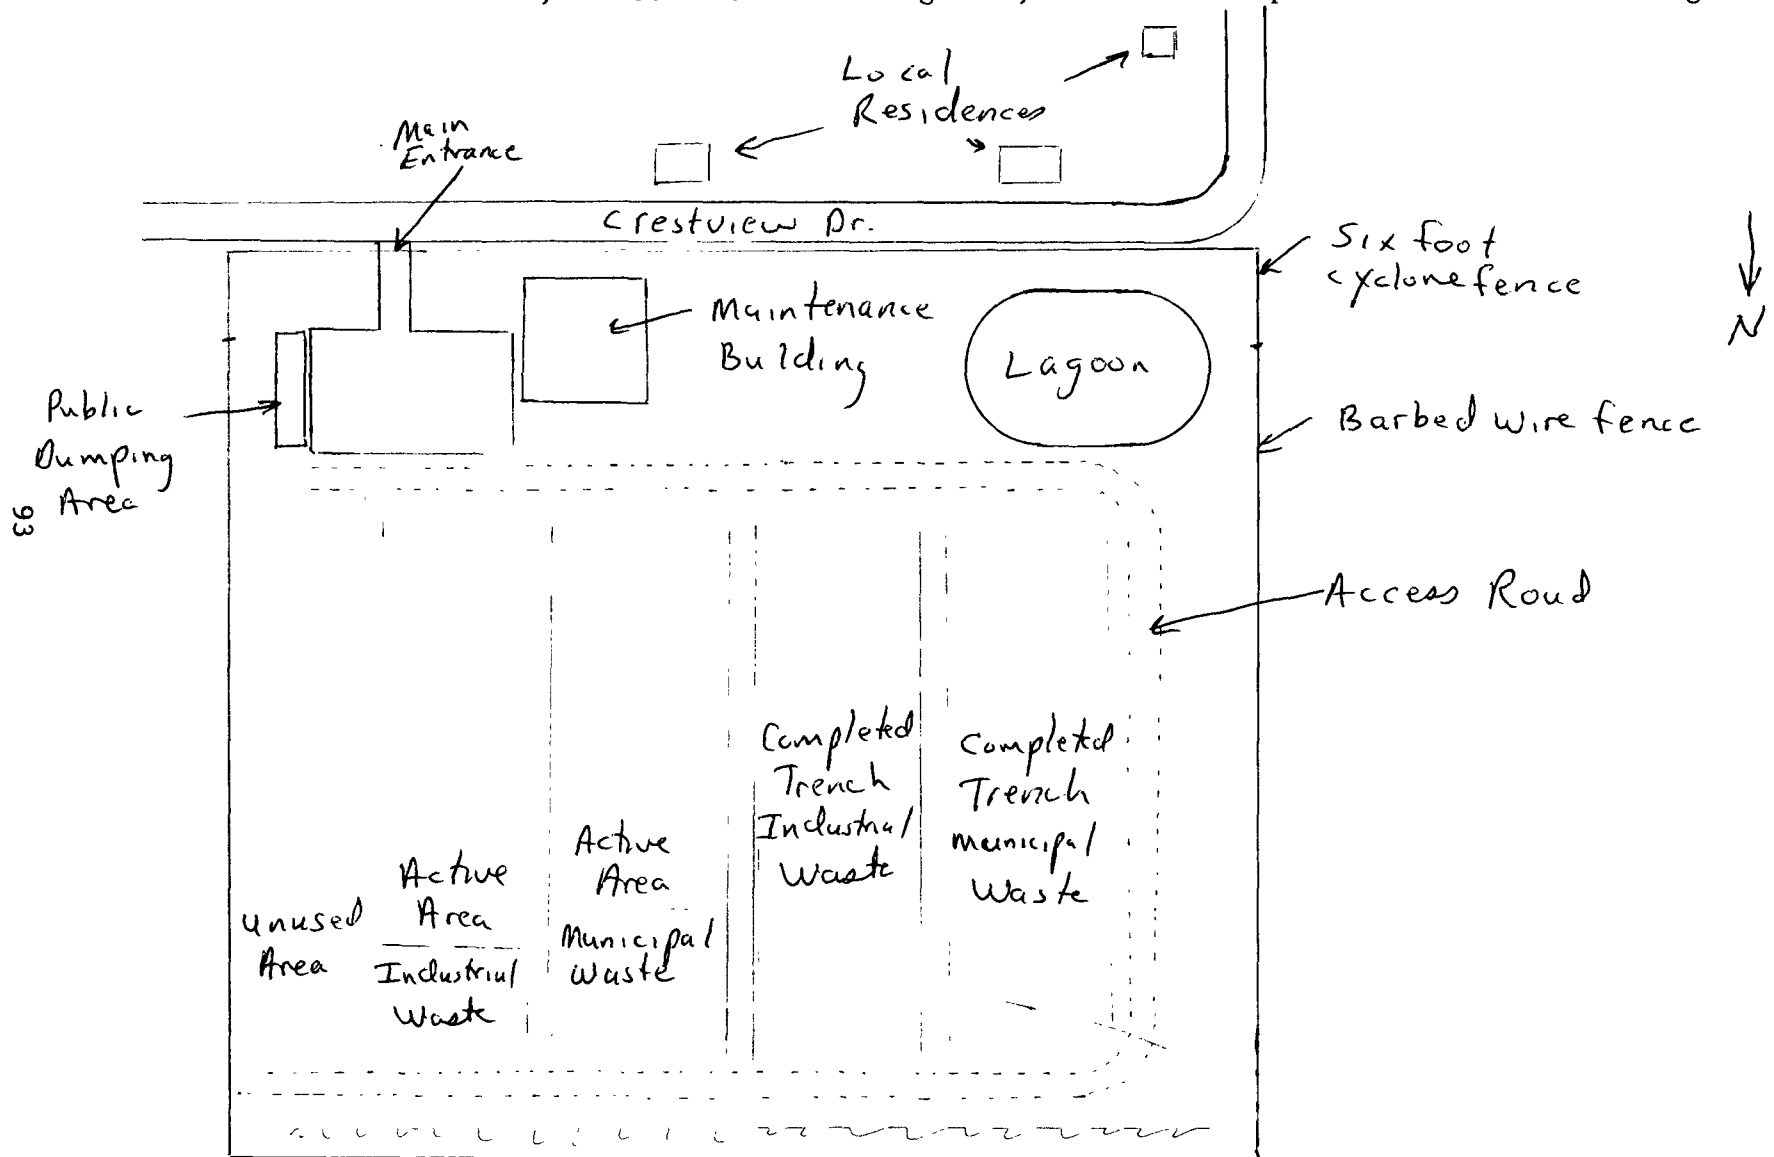 Local
Residences
Main
Entrance
Crestview Dr.
Six foot
cyclone fence
N
Maintenance
Building
Lagoon
Barbed wire fence
Public
Dumping
Area
93
Access Road
Completed
Trench
Industrial
Waste
Completed
Trench
Municipal
Waste
Active
Area
Municipal
Waste
Active
Area
Industrial
Waste
Unused
Area